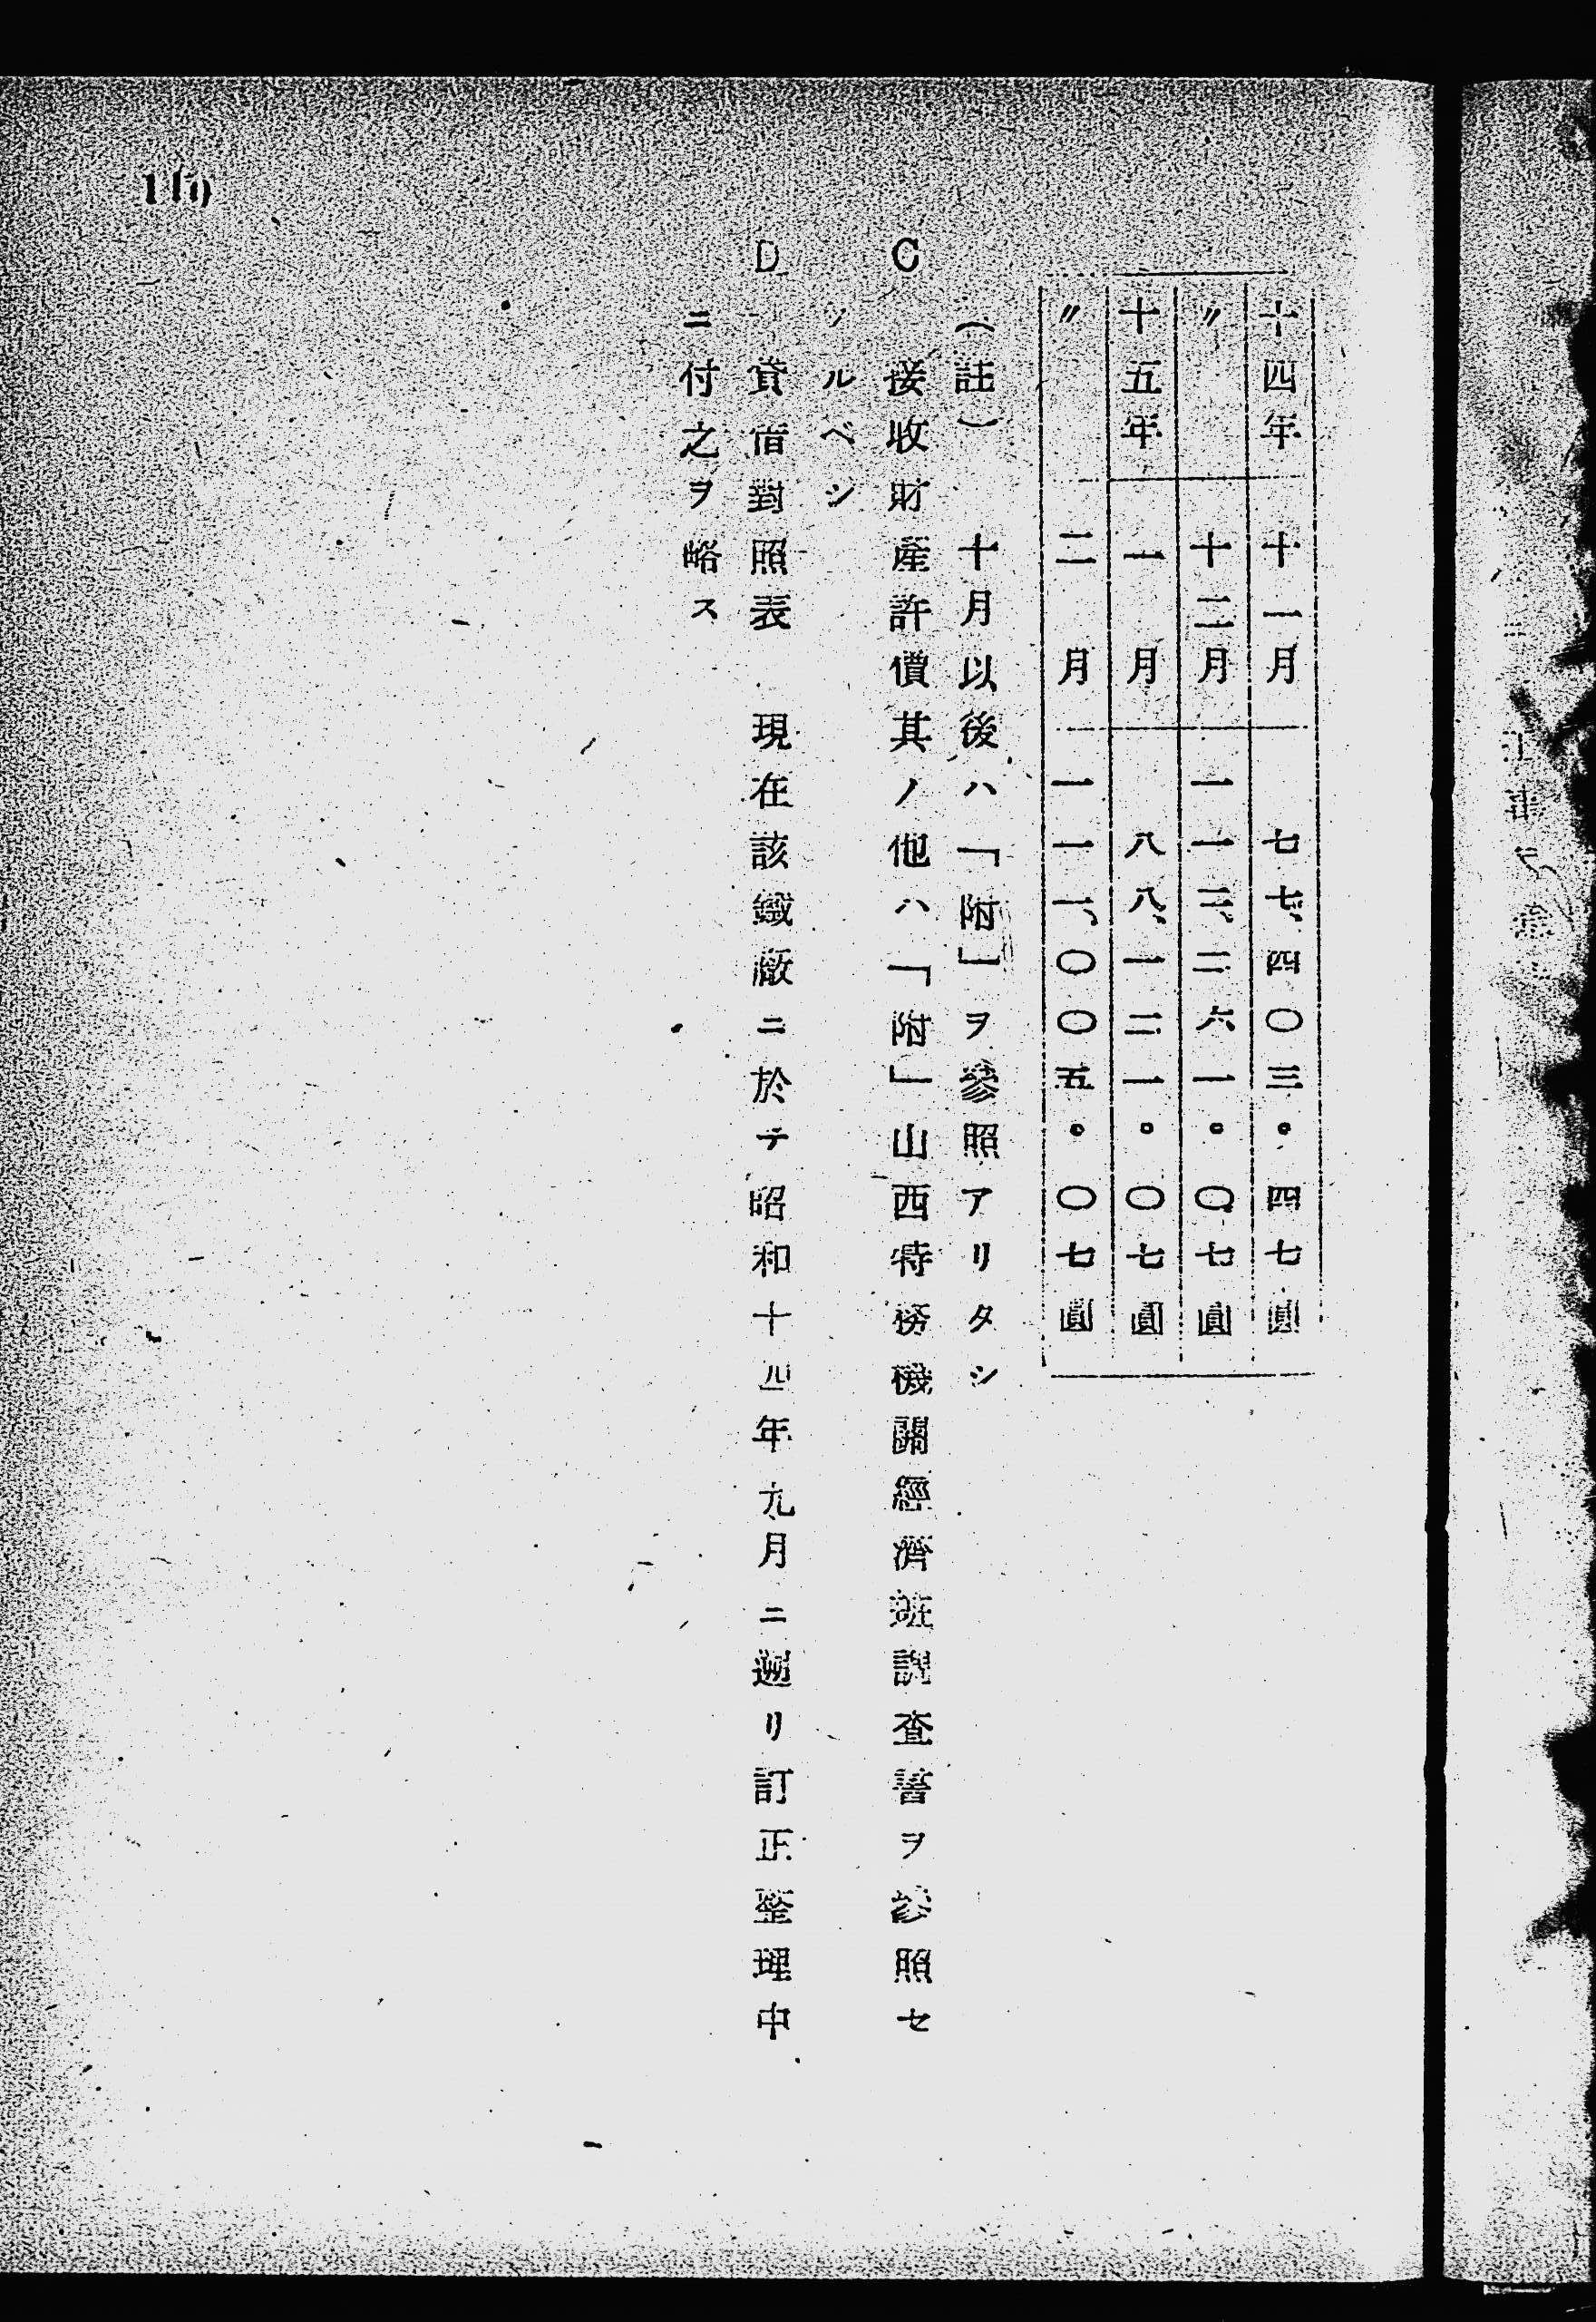 十四年 十一月 七七、四〇三。四七圓
〃 十二月 一一三、二六一。〇七圓
十五年 一月 八八、一二一。〇七圓
〃 二月 一一一、〇〇五。〇七圓
（註） 十月以後ハ「附」ヲ參照アリタシ
C 接收財產許價其ノ他ハ「附」山西特務機關經濟班調查書ヲ參照セ
ルベシ
D 貸借對照表 現在該鐵廠ニ於テ昭和十四年九月ニ遡リ訂正整理中
ニ付之ヲ略ス
110